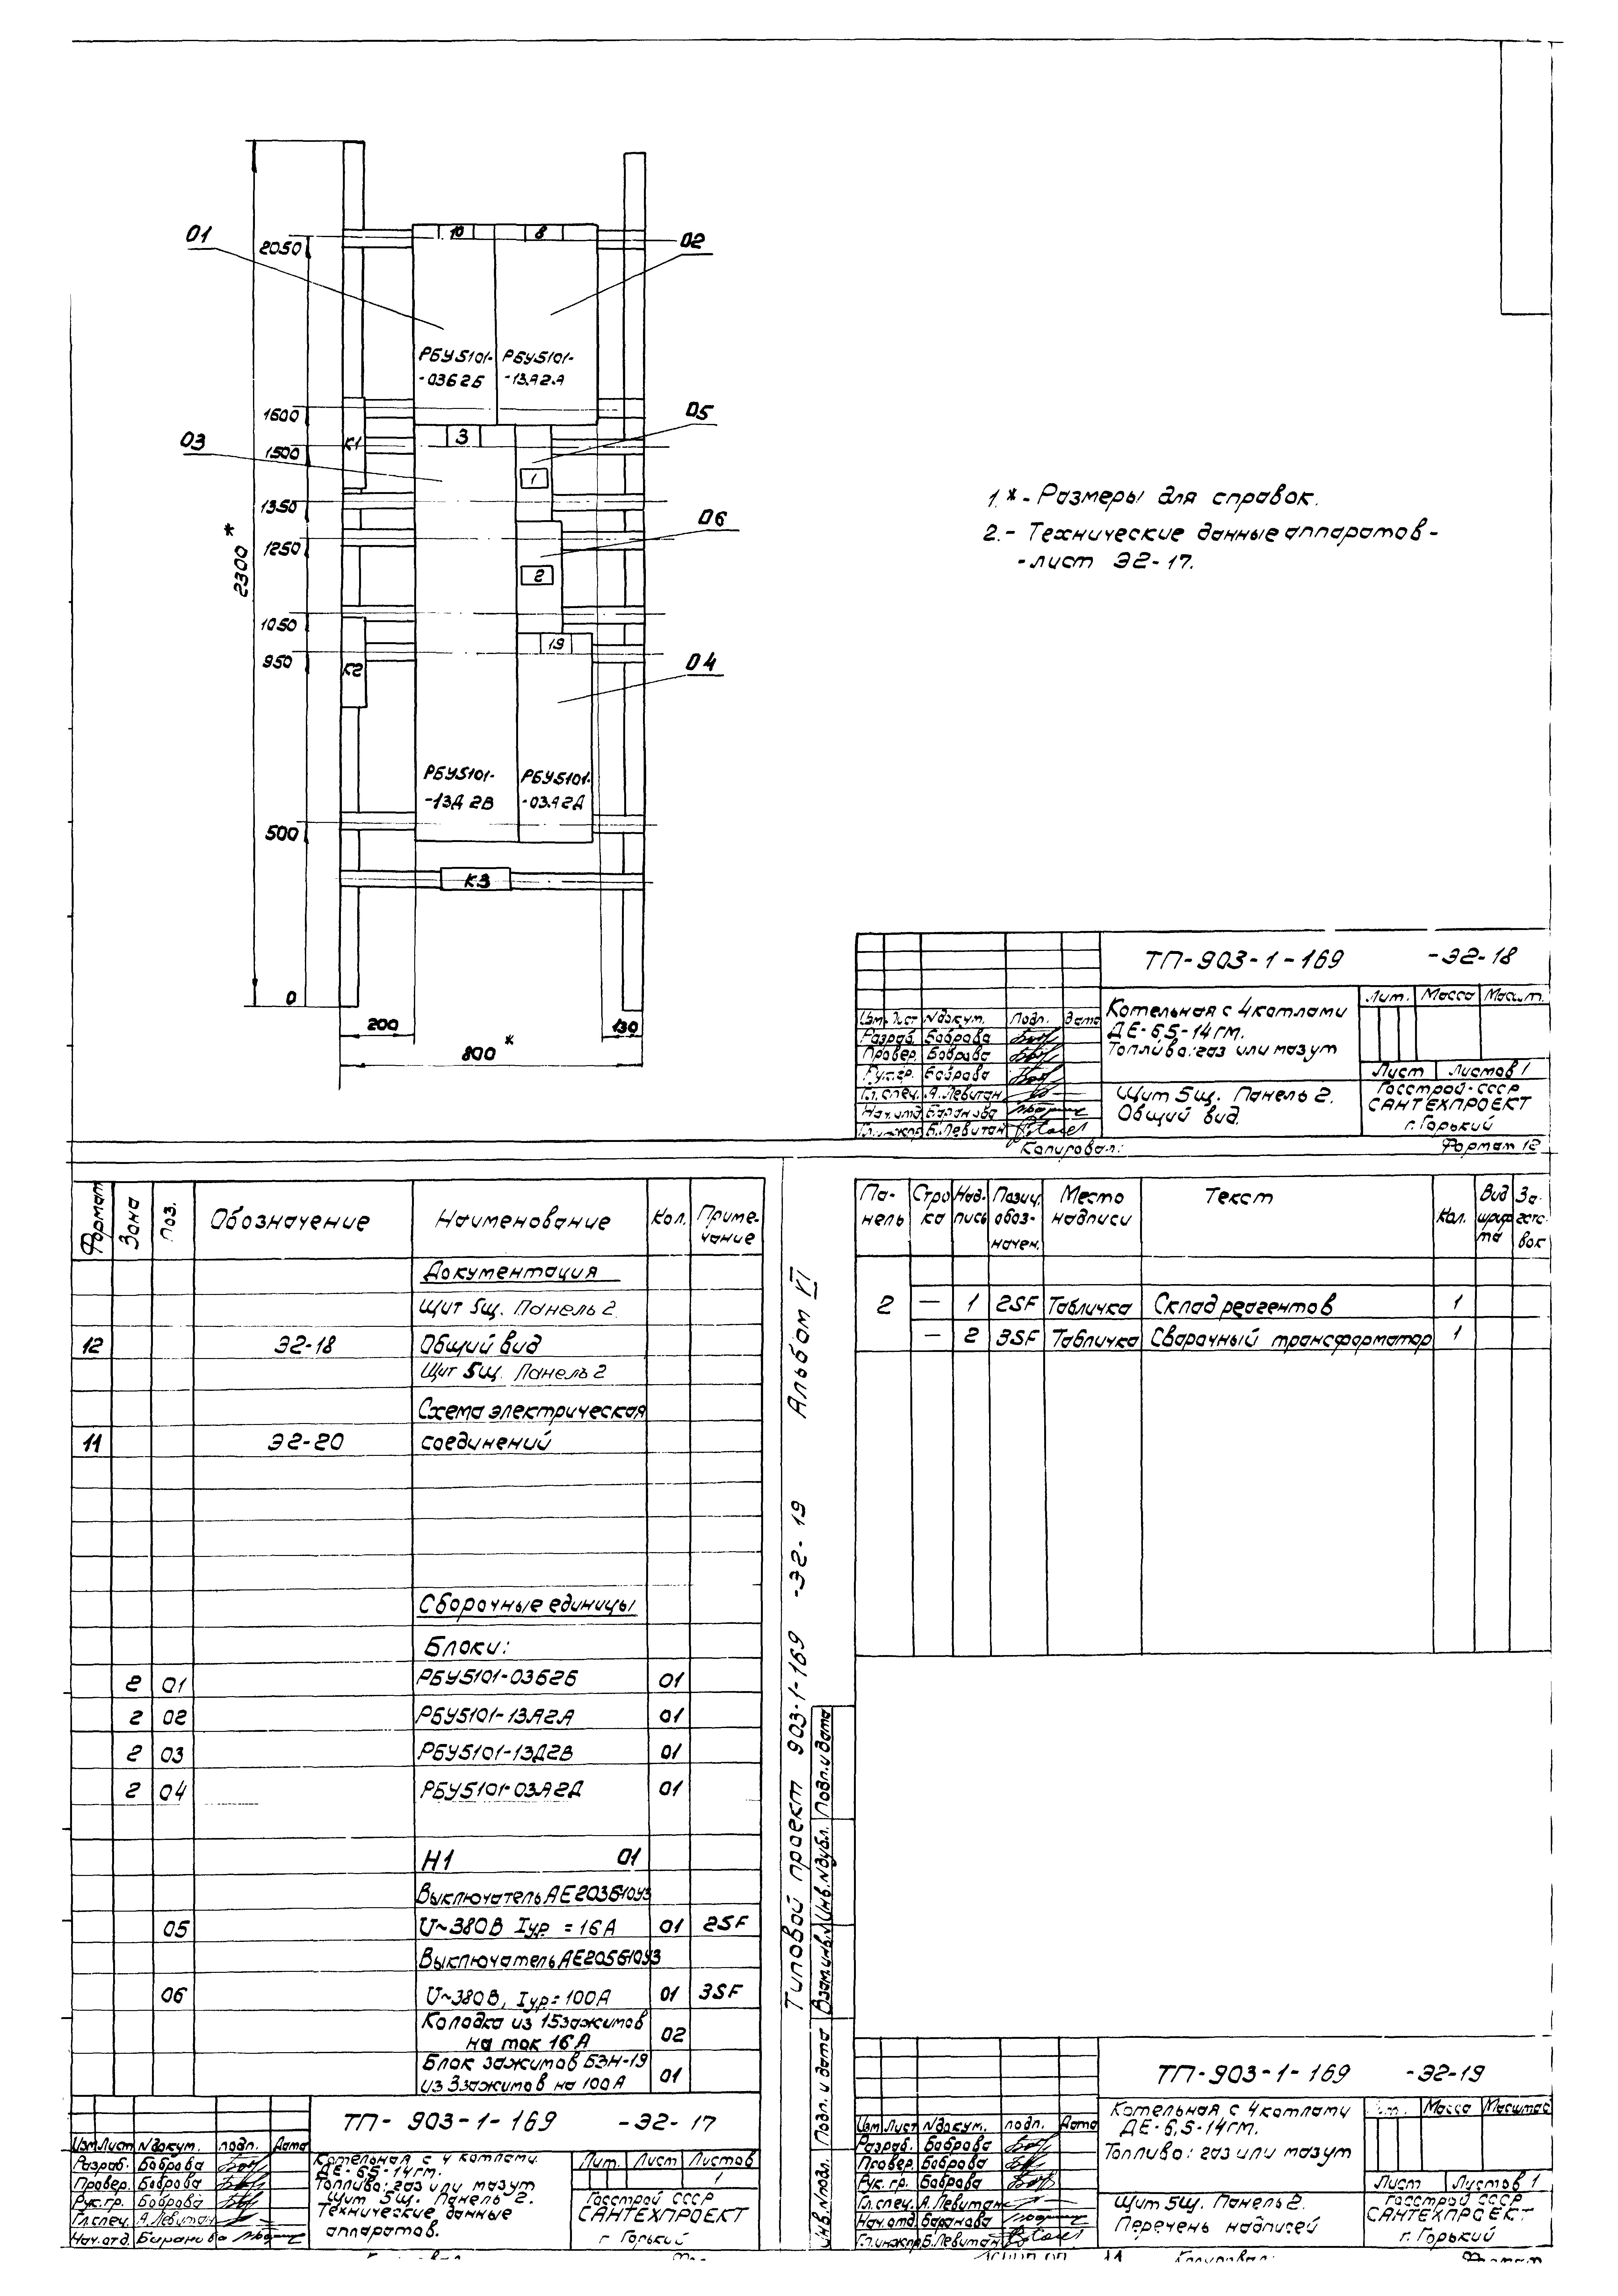 01
02
2050
10
8
РБУ5101-
-03Б2Б
РБУ5101-
-13А2А
1600
К1
3
05
03
1500
1
1350
2300*
1250
06
2
1050
950
К2
19
04
РБУ5101-
-13Д2В
РБУ5101-
-03А2Д
500
К3
0
200
130
800*
1.* - Размеры для справок.
2. - Технические данные аппаратов -
- лист Э2-17.
ТП-903-1-169 -Э2-18
Котельная с 4 котлами
ДЕ-6,5-14гм.
Топливо: газ или мазут
Лит. Масса Масшт.
Изм. Лист №докум. Подп. Дата
Разраб. Боброва
Провер. Боброва
Рук.гр. Боброва
Гл.спец. А.Левитан
Нач.отд. Баранова
Гл.инжпр. Б.Левитан
Лист Листов 1
Щит 5щ. Панель 2.
Общий вид.
Госстрой-СССР
САНТЕХПРОЕКТ
г.Горький
Копировал: Формат 12
Формат Зона Поз. Обозначение Наименование Кол. Приме-
чание
Документация
Щит 5щ. Панель 2
12 Э2-18 Общий вид
Щит 5щ. Панель 2
Схема электрическая
11 Э2-20 соединений
Сборочные единицы
Блоки:
2 01 РБУ5101-03Б2Б 01
2 02 РБУ5101-13А2А 01
2 03 РБУ5101-13Д2В 01
2 04 РБУ5101-03А2Д 01
Н1 01
Выключатель АЕ203610У3
05 U~380В Iур = 16А 01 2SF
Выключатель АЕ205610У3
06 U~380В, Iур = 100А 01 3SF
Колодка из 15зажимов
на ток 16А 02
Блок зажимов БЗН-19
из 3зажимов на 100А 01
ТП-903-1-169 -Э2-17
Изм Лист №докум. подп. Дата
Разраб. Боброва
Провер. Боброва
Рук.гр. Боброва
Гл.спец. А.Левитан
Нач.отд. Баранова
Котельная с 4 котлами
ДЕ-6,5-14гм.
Топливо: газ или мазут
Щит 5щ. Панель 2.
Технические данные
аппаратов.
Лит. Лист Листов
1
Госстрой СССР
САНТЕХПРОЕКТ
г Горький
Типовой проект 903-1-169 -Э2-19 Альбом VI
Инв.№подл. Подп. и дата Взам.инв.№ Инв.№дубл. Подп.и дата
Па-
нель
Стро
ка
Над-
пись
Позиц.
обоз-
начен.
Место
надписи
Текст
Кол.
Вид
шриф
та
За-
гото-
вок
2 — 1 2SF Табличка Склад реагентов 1
— 2 3SF Табличка Сварочный трансформатор 1
ТП-903-1-169 -Э2-19
Котельная с 4 котлами
ДЕ-6,5-14гм.
Топливо: газ или мазут
Масса Масштаб
Изм Лист №докум. подп. Дата
Разраб. Боброва
Провер. Боброва
Рук. гр. Боброва
Гл.спец. А.Левитан
Нач.отд. Баранова
Гл.инжпр. Б.Левитан
Лист Листов 1
Щит 5щ. Панель 2.
Перечень надписей
Госстрой СССР
САНТЕХПРОЕКТ
г. Горький
Копировал: Формат